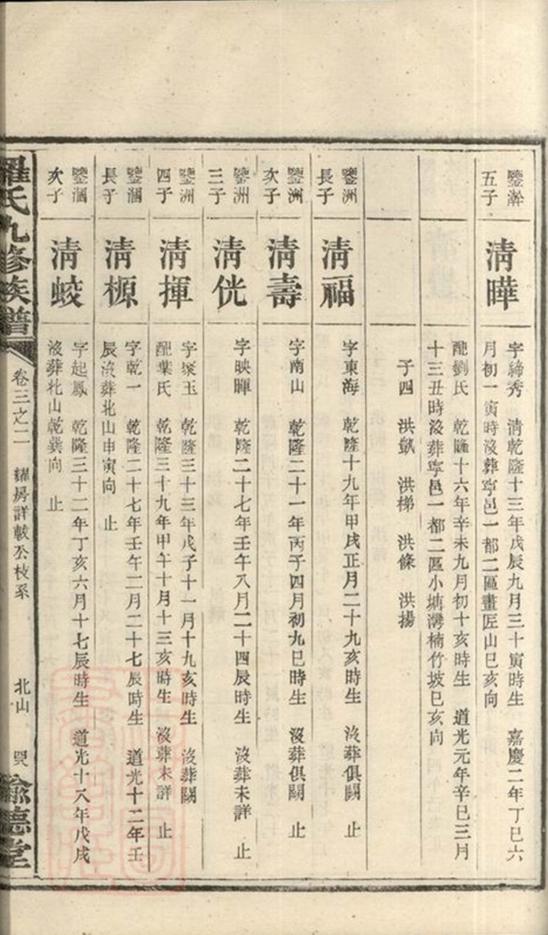 鑒瀚
五子
清曄
字締秀 清乾隆十三年戊辰九月三十寅時生 嘉慶二年丁巳六
月初一寅時沒葬寧邑一都二區畫匠山巳亥向
配劉氏 乾隆十六年辛未九月初十亥時生 道光元年辛巳三月
十三丑時沒葬寧邑一都二區小塘灣楠竹坡巳亥向
子四 洪 洪梯 洪條 洪揚
鑒洲
長子
清福
字東海 乾隆十九年甲戌正月二十九亥時生 沒葬俱闕 止
鑒洲
次子
清壽
字南山 乾隆二十一年丙子四月初九巳時生 沒葬俱闕 止
鑒洲
三子
清侊
字映暉 乾隆二十七年壬午八月二十四辰時生 沒葬未詳 止
鑒洲
四子
清揮
字聚玉 乾隆三十三年戊子十一月十九亥時生 沒葬闕
配葉氏 乾隆三十九年甲午十月十三亥時生 沒葬未詳 止
鑒涸
長子
清榞
字乾一 乾隆二十七年壬午二月二十七辰時生 道光十二年壬
辰沒葬北山申寅向 止
鑒涸
次子
清蛟
字起鳳 乾隆三十二年丁亥六月十七辰時生 道光十八年戊戌
沒葬北山乾巽向 止
羅氏九修族譜
卷三之二
耀房詳載公枝系
北山
敦德堂